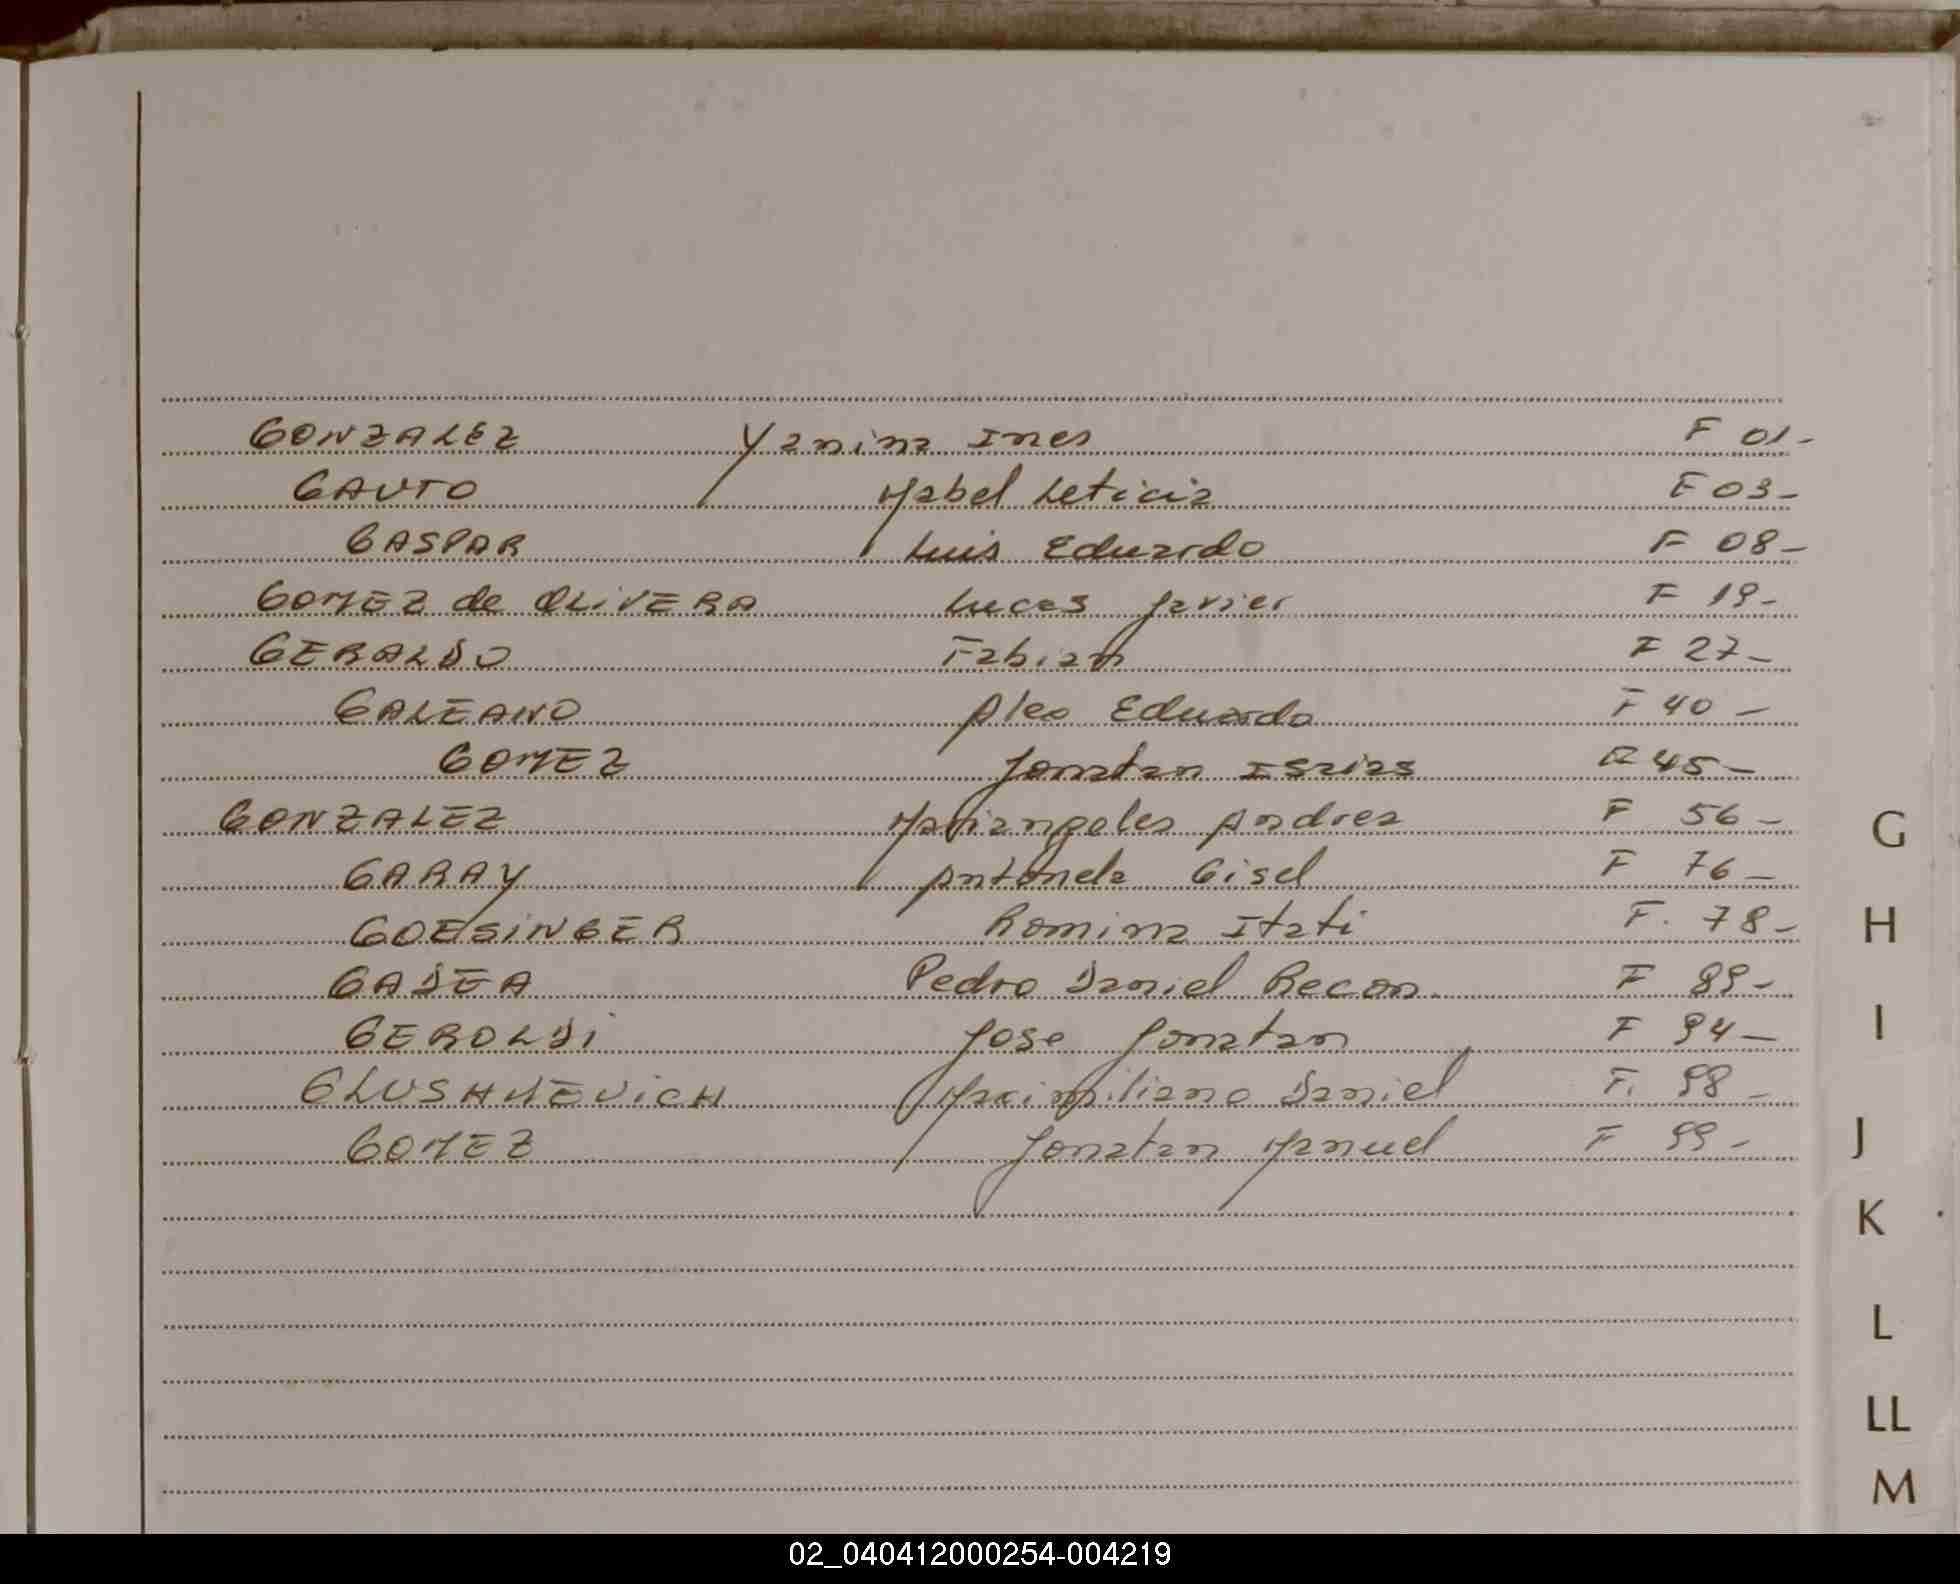 GONZALEZ Yanina Ines F 01-
GAUTO Mabel Leticia F 03-
GASPAR Luis Eduardo F 08-
GOMEZ de OLIVERA Lucas Javier F 19-
GERALDO Fabian F 27-
GALEANO Aleo Eduardo F 40-
GOMEZ Jonatan Isaias 45-
GONZALEZ Mariangeles Andrea F 56-
GARAY Antonela Gisel F 76-
GOESINGER Romina Itati F. 78-
GADEA Pedro Daniel Recon. F 89-
GEROLDI Jose Jonatan F 94-
GLUSHKEVICH Maximiliano Daniel F. 98-
GOMEZ Jonatan Manuel F 99-
G
H
I
J
K
L
LL
M
02_040412000254-004219